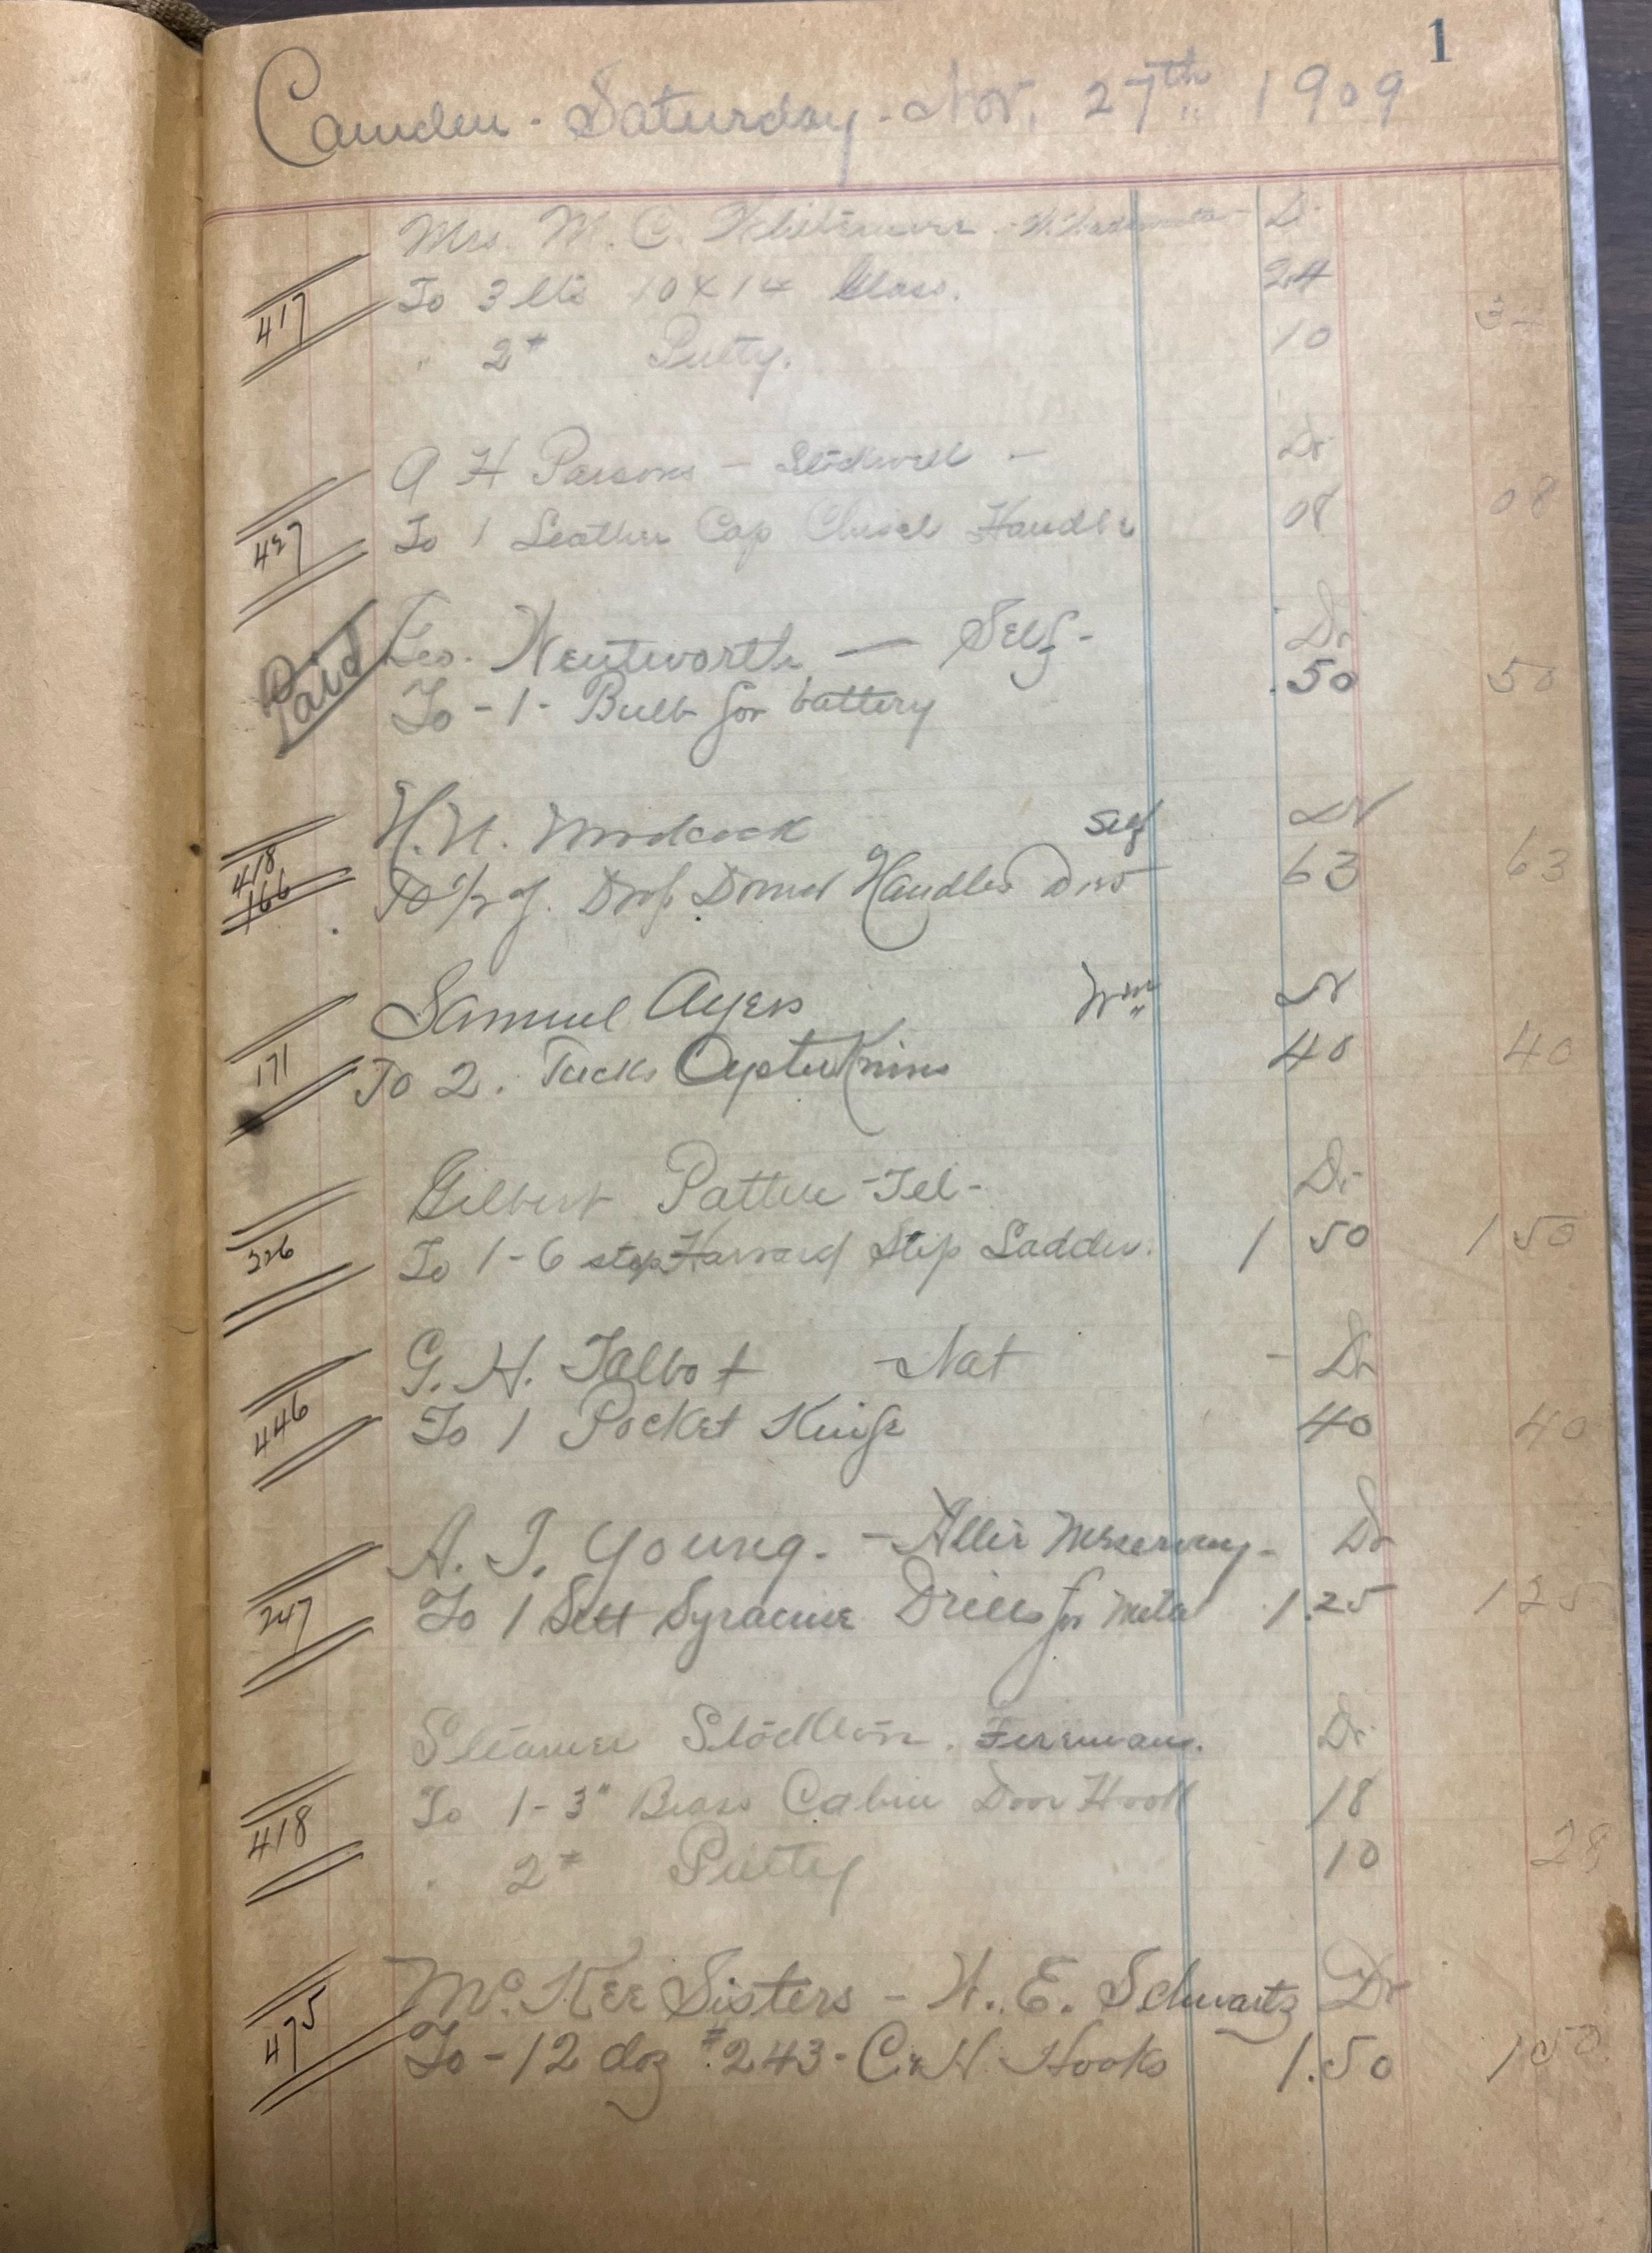 1
Camden - Saturday - Nov. 27th 1909
Mrs. M. C. Whitmore - Dr.
417
To 3 lts 10 x 14 Glass. 24
" 2# Putty. 10 34
A H Parsons - Dr
427
To 1 Leather Cap Chisel Handle 08 08
Paid
Geo. Wentworth - Self - Dr.
To - 1 - Bulb for battery .50 50
H. H. Self Dr
418
166
To 1/2 Drop Handles 63 63
Samuel Ayers Wm Dr
171
To 2. Tucks Oyster Knives 40 40
Gilbert Patten - Tel - Dr
226
To 1 - 6 step Harvard Step Ladder. 1 50 1 50
G. H. Talbot - Nat - Dr
446
To 1 Pocket Knife 40 40
A. T. Young. - Allie Meservey - Dr
247
To 1 Sett Syracuse Drills for Metal 1.25 1 25
Steamer Fireman. Dr.
418
To 1 - 3" Brass Cabin Door Hook 18
" 2# Putty 10 28
McKee Sisters - W. E. Schwartz Dr
475
To - 12 doz #243 - C & H. Hooks 1.50 1 50